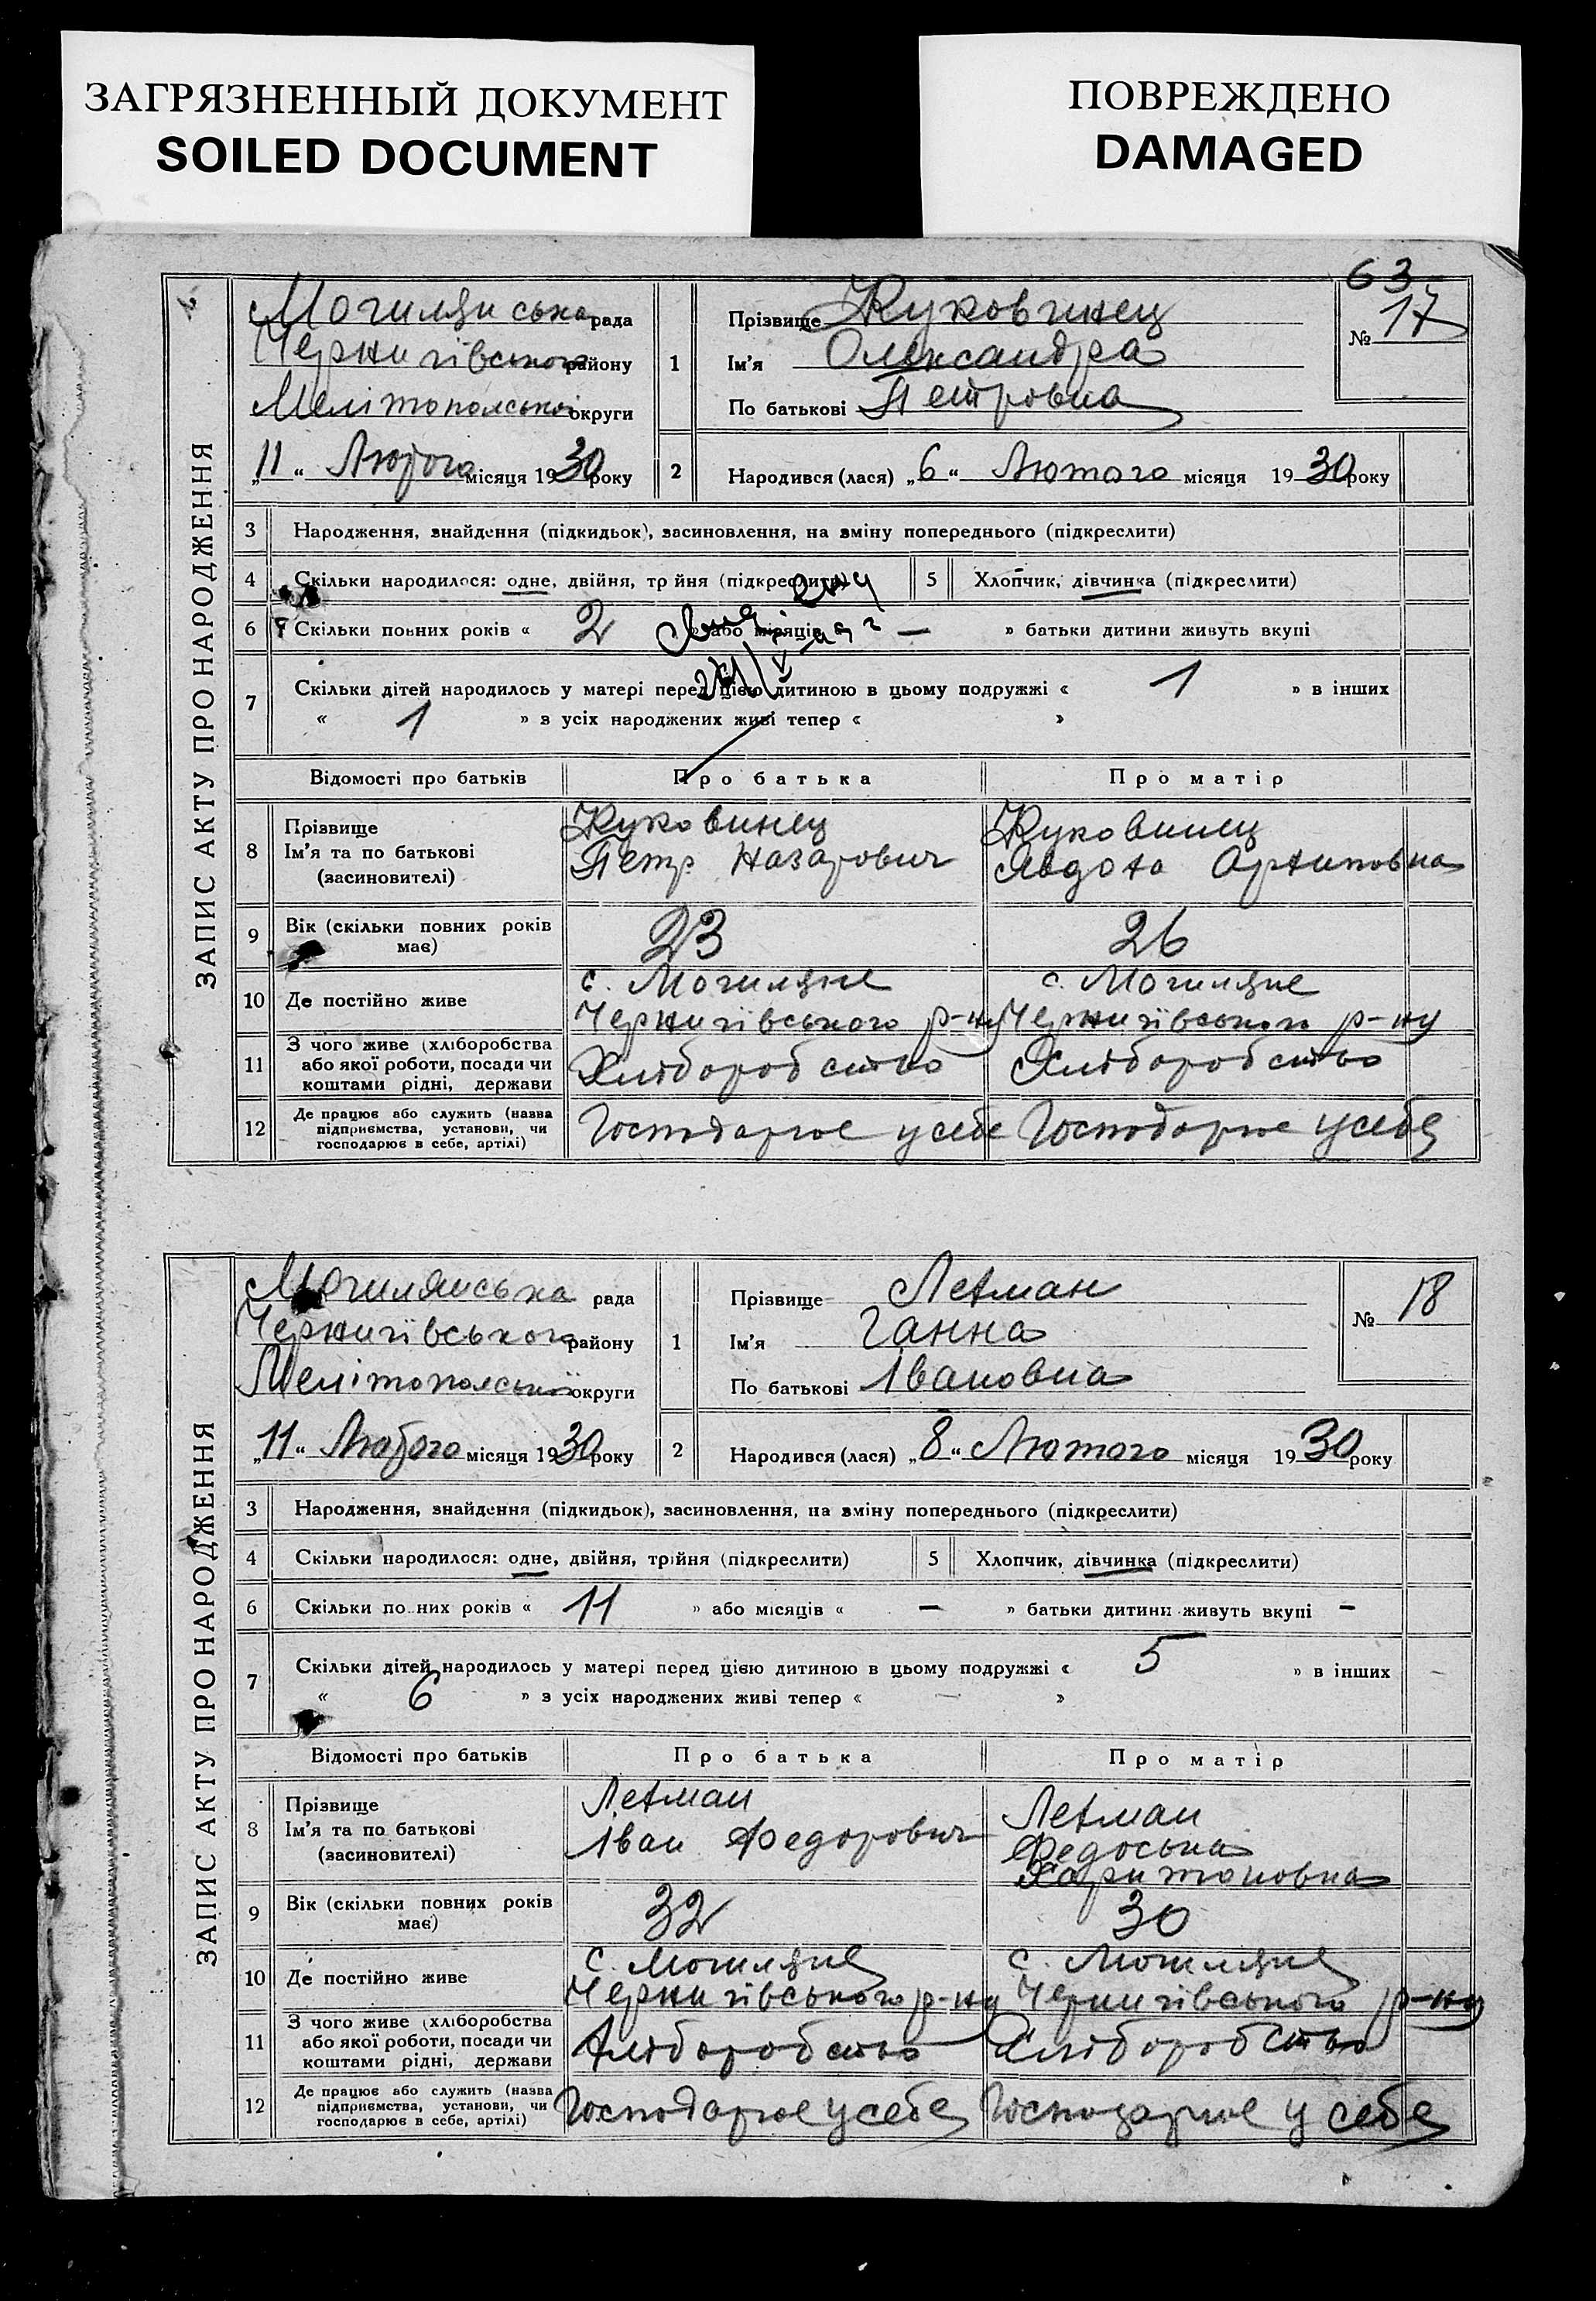 ЗАГРЯЗНЕННЫЙ ДОКУМЕНТ
SOILED DOCUMENT
ПОВРЕЖДЕНО
DAMAGED
63
ЗАПИС АКТУ ПРО НАРОДЖЕННЯ
Могилянська рада
Чернигівського району
Мелітопольської округи
„11“ Лютого місяця 1930 року
1
Прізвище Жуковинец
Ім'я Олександра
По батькові Петровна
№ 17
2 Народився (лася) „6“ Лютого місяця 1930 року
3 Народження, знайдення (підкидьок), засиновлення, на зміну попереднього (підкреслити)
4 Скільки народилося: одне, двійня, трійня (підкреслити)
5 Хлопчик, дівчинка (підкреслити)
6 Скільки повних років « 2 » або місяців « — » батьки дитини живуть вкупі
7 Скільки дітей народилось у матері перед цією дитиною в цьому подружжі « 1 » в інших
« 1 » з усіх народжених живі тепер « »
Відомості про батьків Про батька Про матір
8 Прізвище
Ім'я та по батькові
(засиновителі)
Жуковинец
Петр Назарович
Жуковинец
Явдоха Архиповна
9 Вік (скільки повних років має) 23 26
10 Де постійно живе
с. Могиляне
Чернигівського р-ну
с. Могиляне
Чернигівського р-ну
11 З чого живе (хліборобства
або якої роботи, посади чи
коштами рідні, держави
Хліборобство Хліборобство
12 Де працює або служить (назва
підприємства, установи, чи
господарює в себе, артілі)
Господарює у себе Господарює у себе
ЗАПИС АКТУ ПРО НАРОДЖЕННЯ
Могилянська рада
Чернигівського району
Мелітопольської округи
„11“ Лютого місяця 1930 року
1
Прізвище Летман
Ім'я Ганна
По батькові Івановна
№ 18
2 Народився (лася) „8“ Лютого місяця 1930 року
3 Народження, знайдення (підкидьок), засиновлення, на зміну попереднього (підкреслити)
4 Скільки народилося: одне, двійня, трійня (підкреслити)
5 Хлопчик, дівчинка (підкреслити)
6 Скільки повних років « 11 » або місяців « — » батьки дитини живуть вкупі —
7 Скільки дітей народилось у матері перед цією дитиною в цьому подружжі « 5 » в інших
« 6 » з усіх народжених живі тепер « — »
Відомості про батьків Про батька Про матір
8 Прізвище
Ім'я та по батькові
(засиновителі)
Летман
Іван Федорович
Летман
Федоська
Харитоновна
9 Вік (скільки повних років має) 32 30
10 Де постійно живе
с. Могиляне
Чернигівського р-ну
с. Могиляне
Чернигівського р-ну
11 З чого живе (хліборобства
або якої роботи, посади чи
коштами рідні, держави
Хліборобство Хліборобство
12 Де працює або служить (назва
підприємства, установи, чи
господарює в себе, артілі)
Господарює у себе Господарює у себе